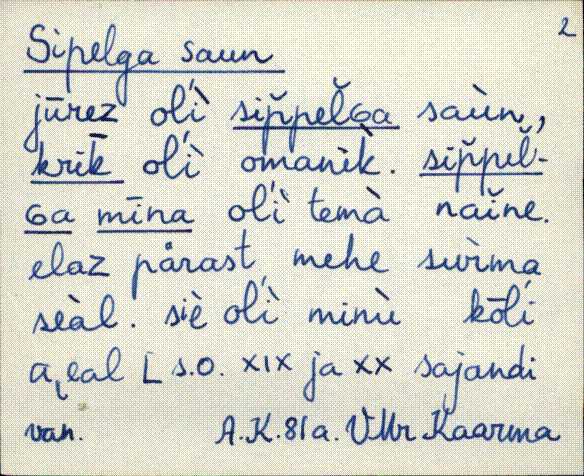 2
Sipelga saun
jūrez oĺì sip̆peĺGa saùn,
krīk oĺì omanìk. sip̆peĺ-
Ga mīna oĺì temà naĭne.
elaz pårast, mehe surma
seàl. siè oĺì minù kōĺi
a̭eal [s.o. XIX ja XX sajandi
van. A.K. 81 a. VMr Kaarma